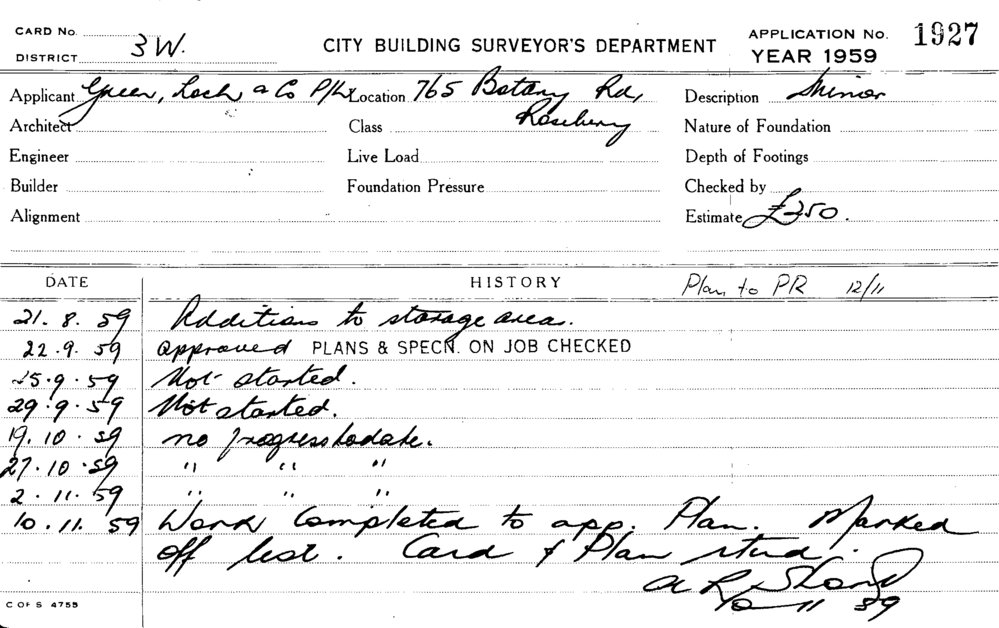 CARD No.
DISTRICT 3 W.
CITY BUILDING SURVEYOR'S DEPARTMENT
APPLICATION No. 1927
YEAR 1959
Applicant Green, & Co P/L Location 765 Botany Rd, Description Minor
Architect Class Rosebery Nature of Foundation
Engineer Live Load Depth of Footings
Builder Foundation Pressure Checked by
Alignment Estimate £350.
DATE HISTORY Plan to PR 12/11
21. 8. 59 Additions to storage area.
22.9.59 approved PLANS & SPECN. ON JOB CHECKED
25.9.59 Not started.
29.9.59 Not started.
19.10.59 no progress to date.
27.10.59 " " "
2.11.59 " " "
10.11.59 Work Completed to app. Plan. Marked
off list. Card & Plan
10 11 59
C OF S 4755